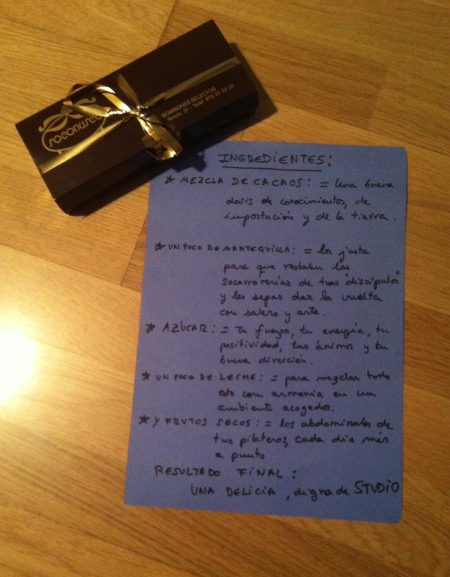 soconusco
BOMBONES SELECTOS
INGREDIENTES:
* MEZCLA DE CACAOS: = Una buena
dosis de conocimientos, de
importación y de la tierra.
* UN POCO DE MANTEQUILLA: = la justa
para que resbalen las
socarronerías de tus "discípulos"
y les sepas dar la vuelta
con salero y arte.
* AZÚCAR: = Tu fuerza, tu energía, tu
positividad, tus ánimos y tu
buena diversión.
* UN POCO DE LECHE: = para mezclar todo
esto con armonía en un
ambiente acogedor.
* Y FRUTOS SECOS: = los abdominales de
tus pilateros, cada día más
a punto
RESULTADO FINAL:
UNA DELICIA, digna de STUDIO